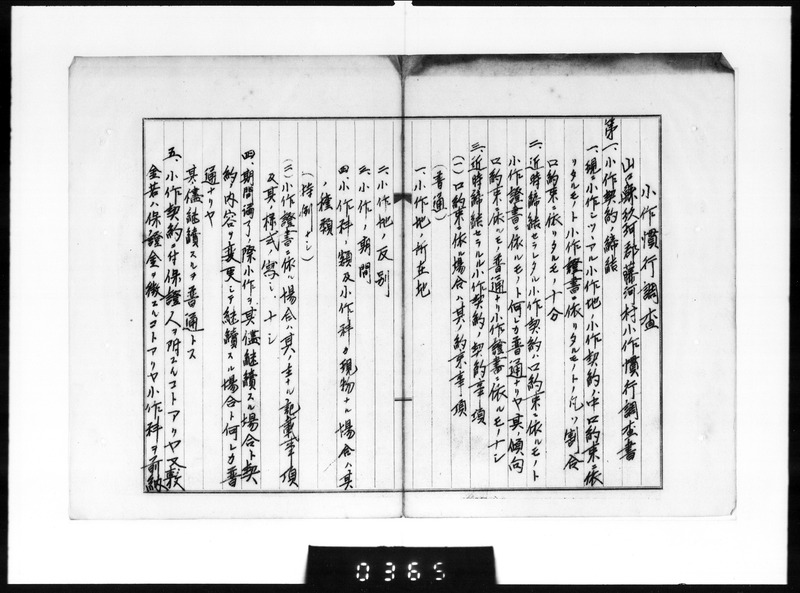 小作慣行調査
山口縣玖珂郡藤河村小作慣行調査書
第一、小作契約ノ締結
一、現ニ小作シツヽアル小作地ノ小作契約ノ中口約束ニ依
リタルモノト小作證書ニ依リタルモノトノ凡ソノ割合
口約束ニ依リタルモノ十分
二、近時締結セラレタル小作契約ハ口約束ニ依ルモノト
小作證書ニ依ルモノト何レカ普通ナリヤ其ノ傾向
口約束ニ依ルモノ普通ナリ小作證書ニ依ルモノナシ
三、近時締結セラルル小作契約ノ契約事項
(一)口約束ニ依ル場合ハ其ノ約束事項
(普通)
一、小作地ノ所在地
二、小作地ノ反別
三、小作ノ期間
四、小作料ノ額及小作料カ現物ナル場合ハ其
ノ種類
(特例ナシ)
(二)小作證書ニ依ル場合ハ其ノ主ナル記載事項
及其ノ樣式ノ寫シ、ナシ
四、期間滿了ノ際小作ヲ其儘継續スル場合ト契
約ノ内容ヲ変更シテ継續スル場合ト何レカ普
通ナリヤ
其儘継續スルヲ普通トス
五、小作契約ニ付保證人ヲ附スルコトアリヤ又敷
金若ハ保證金ヲ徴スルコトアリヤ小作料ヲ前納
0365